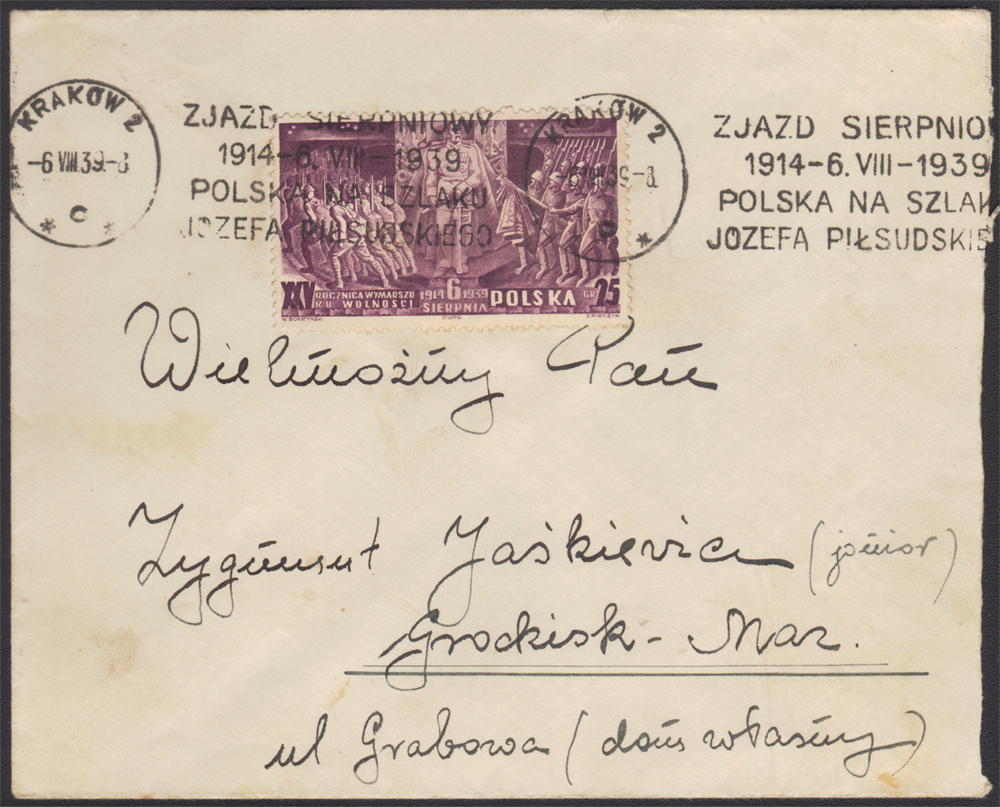 KRAKÓW 2
-6 VIII 39.-8
* C *
ZJAZD SIERPNIOWY
1914-6. VIII-1939
POLSKA NA SZLAKU
JÓZEFA PIŁSUDSKIEGO
KRAKÓW 2
-6 VIII 39-8
C *
ZJAZD SIERPNIO
1914-6. VIII-1939
POLSKA NA SZLAK
JÓZEFA PIŁSUDSKIE
XXV ROCZNICA WYMARSZU KU WOLNOŚCI 1914 6 1939 SIERPNIA POLSKA GR 25
Wielmożny Pan
Zygmunt Jaśkiewicz (junior)
Grodzisk - Maz.
ul Grabowa (dom własny)